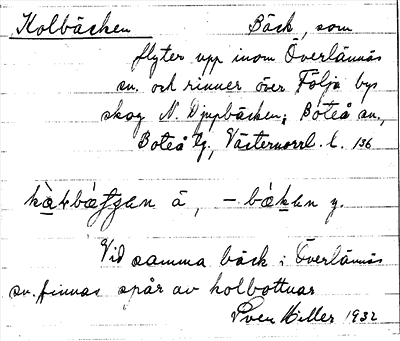 Kolbäcken Bäck, som
flyter upp inom Överlännäs
sn. och rinner över Följa bys
skog N. Djupbäcken; Boteå sn.,
Boteå tg., Västernorrl. l. 136
ä, – y.
Vid samma bäck i Överlännäs
sn. finnas spår av kolbottnar
Sven Hiller 1932